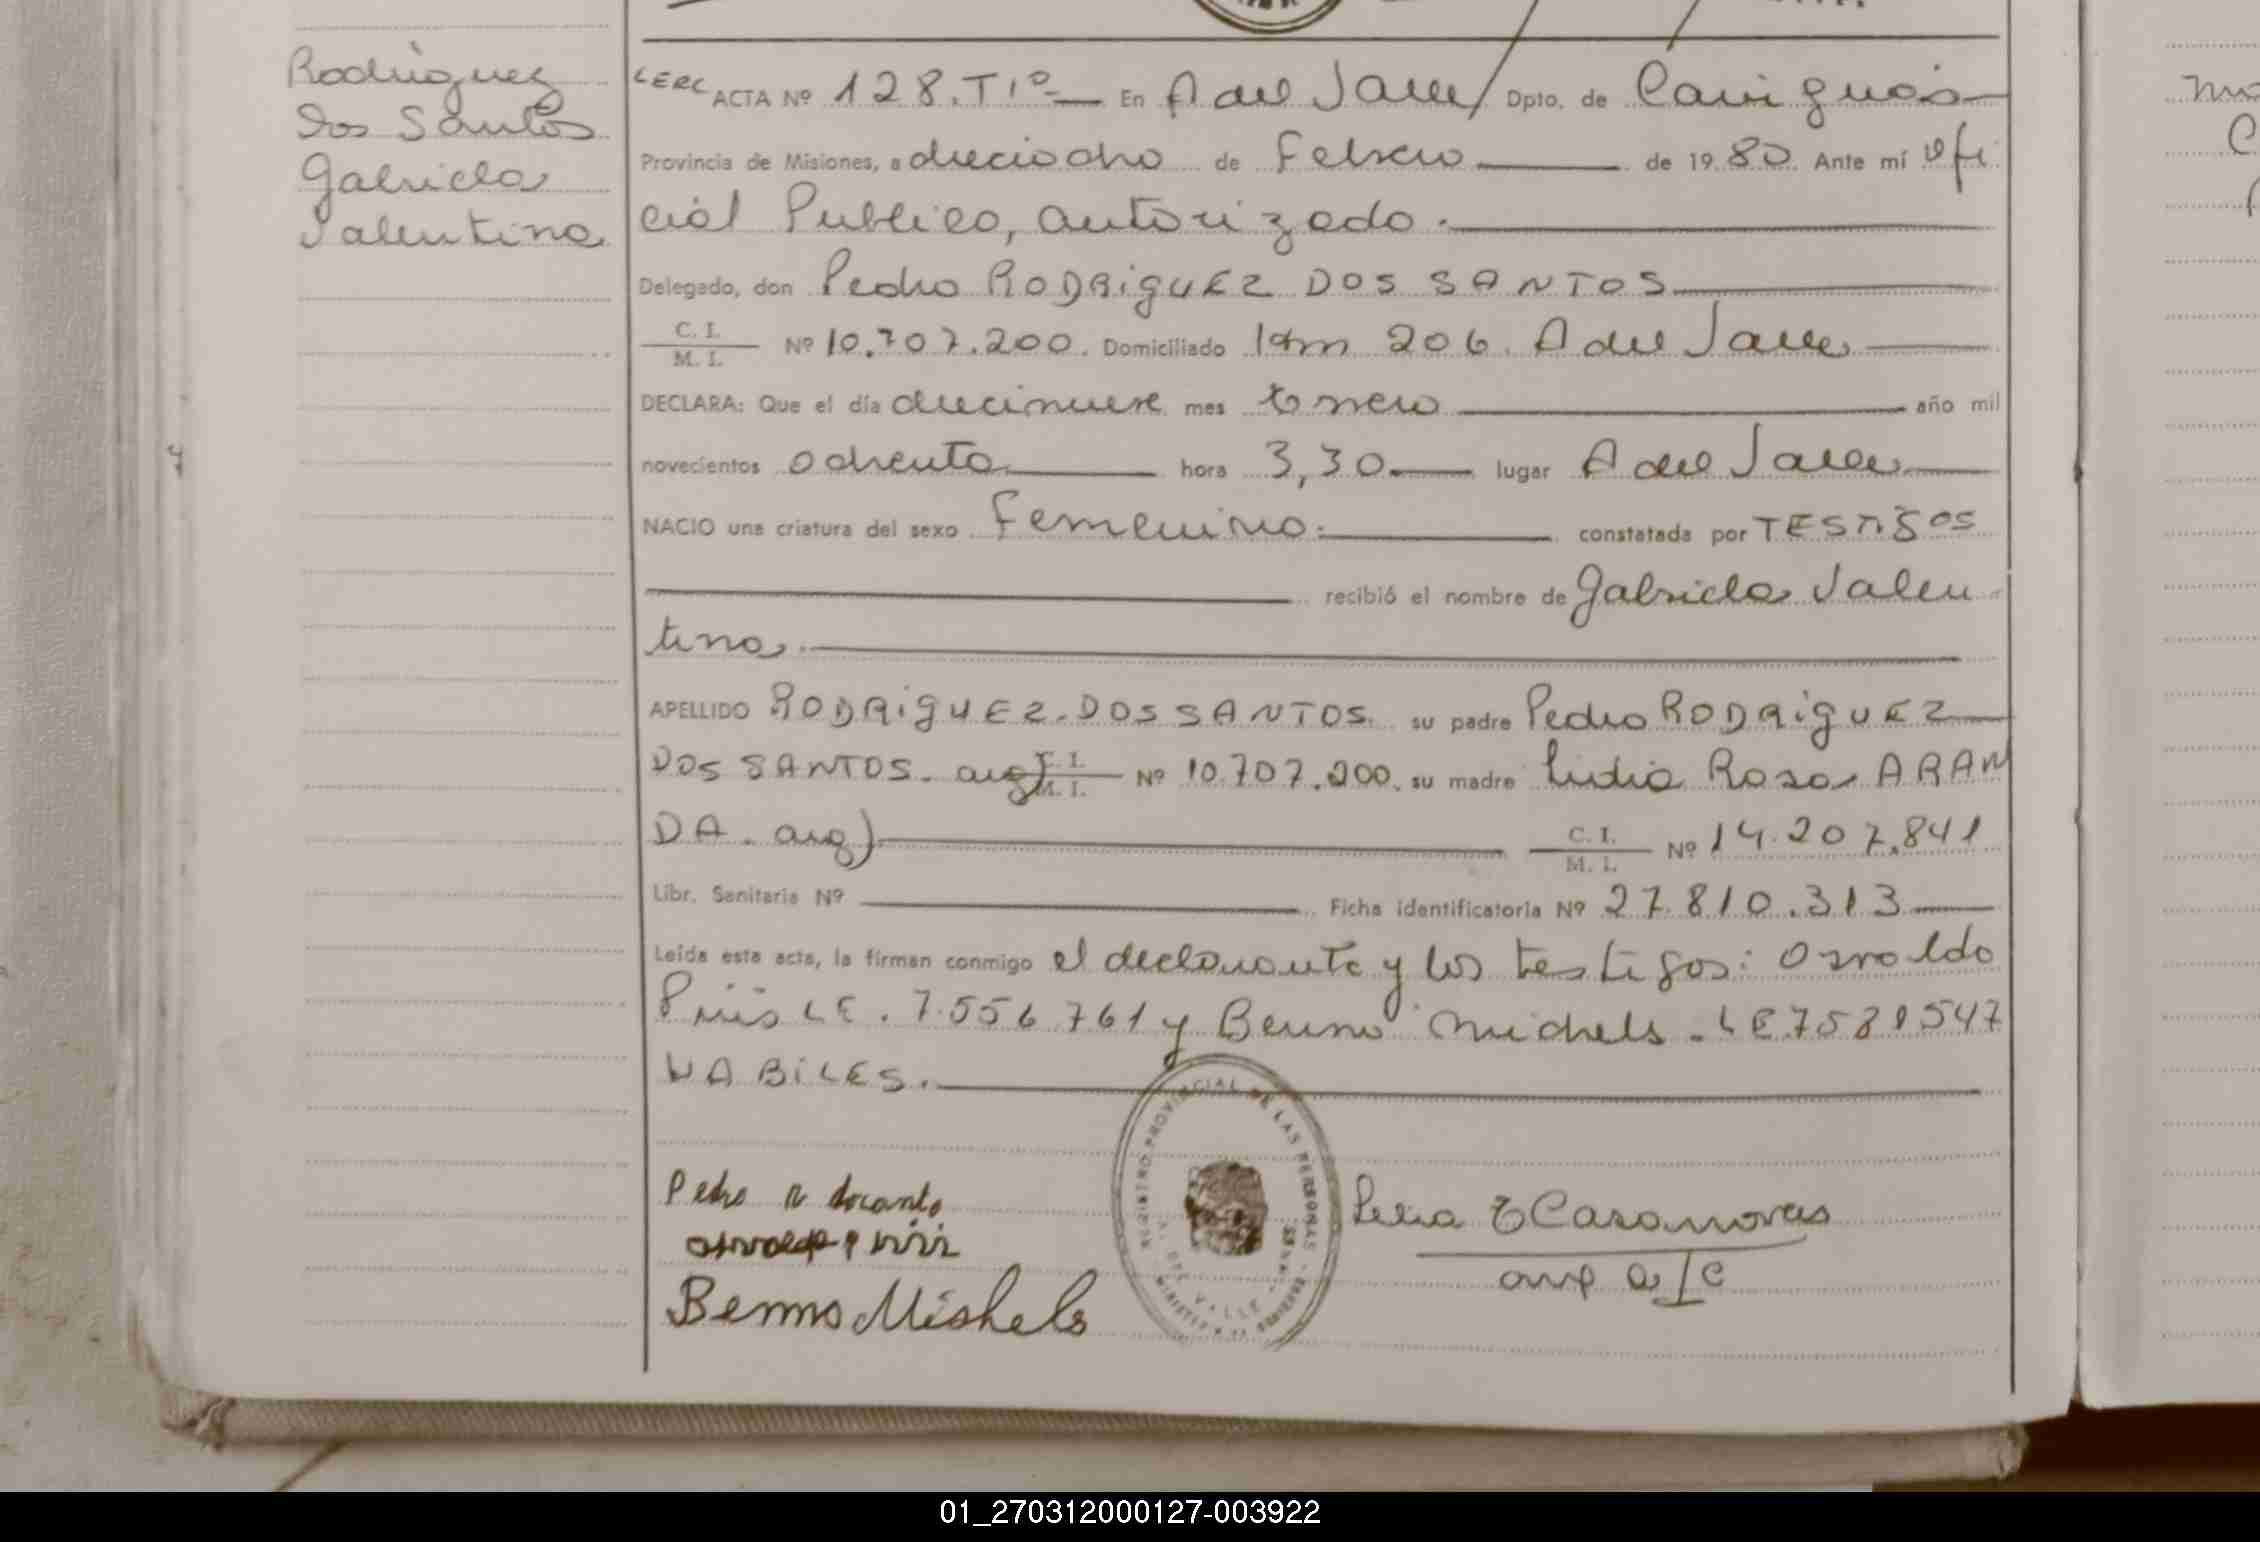 Rodriguez
Dos Santos
Gabriela
Valentina
LERC ACTA Nº 128. T1º En A del Valle Dpto. de Cainguás
Provincia de Misiones, a dieciocho de Febrero de 1980. Ante mí Ofi
cial Publico, autorizado.
Delegado, don Pedro RODRiGUEZ DOS SANTOS
C. I.
M. I. Nº 10.707.200. Domiciliado Km 206. A del Valle
DECLARA: Que el día diecinueve mes Enero año mil
novecientos ochenta hora 3,30 lugar A del Valle
NACIO una criatura del sexo Femenino. constatada por TESTiGOS
recibió el nombre de Gabriela Valen
tina.
APELLIDO RODRiGUEZ. DOS SANTOS. su padre Pedro RODRiGUEZ
DOS SANTOS. arg) C. I.
M. I. Nº 10.707.200. su madre Lidia Rosa ARAN
DA. arg) C. I.
M. I. Nº 14.207.841
Libr. Sanitaria Nº Ficha identificatoria Nº 27.810.313
Leída esta acta, la firman conmigo el declarante y los testigos: Osvaldo
LE. 7.556 761 y Benno Michels. LE 7581547
HABiLES.
REGISTRO PROVINCIAL DE LAS PERSONAS
DEL VALLE
Pedro R docanto
Benno Mishels
E Casanovas